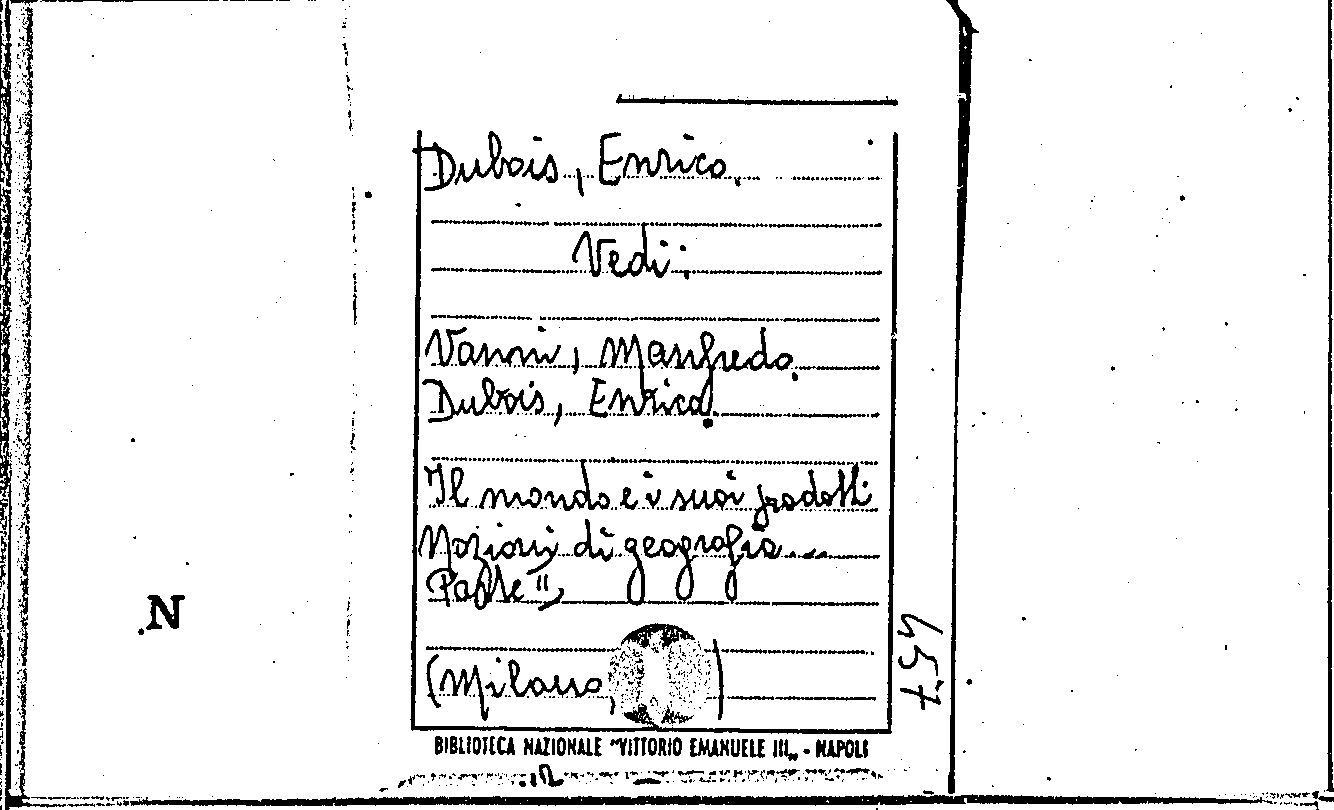 Dubois, Enrico.
Vedi:
Vanni, Manfredo.
Dubois, Enrico.
Il mondo e i suoi prodotti
Nozioni di geografia...
Parte II,
(Milano, )
BIBLIOTECA NAZIONALE "VITTORIO EMANUELE III„ - NAPOLI
N